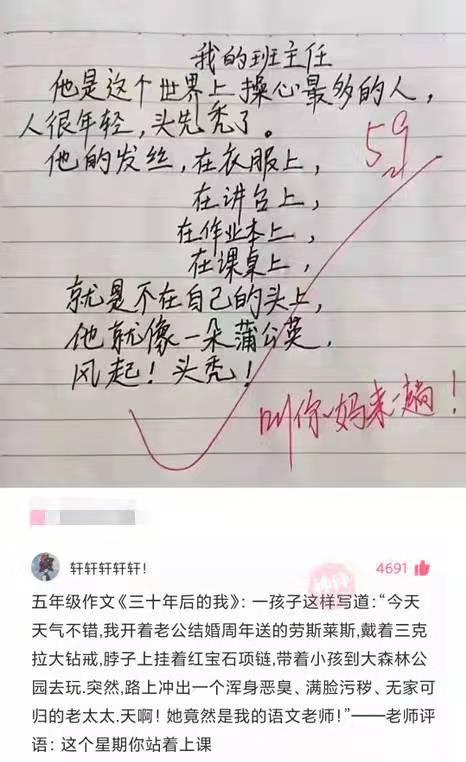 我的班主任
他是这个世界上操心最多的人，
人很年轻，头先秃了。
59
他的发丝，在衣服上，
在讲台上，
在作业本上，
在课桌上，
就是不在自己的头上，
他就像一朵蒲公英，
风起！头秃！
叫你妈来一趟！
轩轩轩轩轩！
4691
五年级作文《三十年后的我》：一孩子这样写道：“今天
天气不错，我开着老公结婚周年送的劳斯莱斯，戴着三克
拉大钻戒，脖子上挂着红宝石项链，带着小孩到大森林公
园去玩.突然，路上冲出一个浑身恶臭、满脸污秽、无家可
归的老太太.天啊！她竟然是我的语文老师！”——老师评
语：这个星期你站着上课